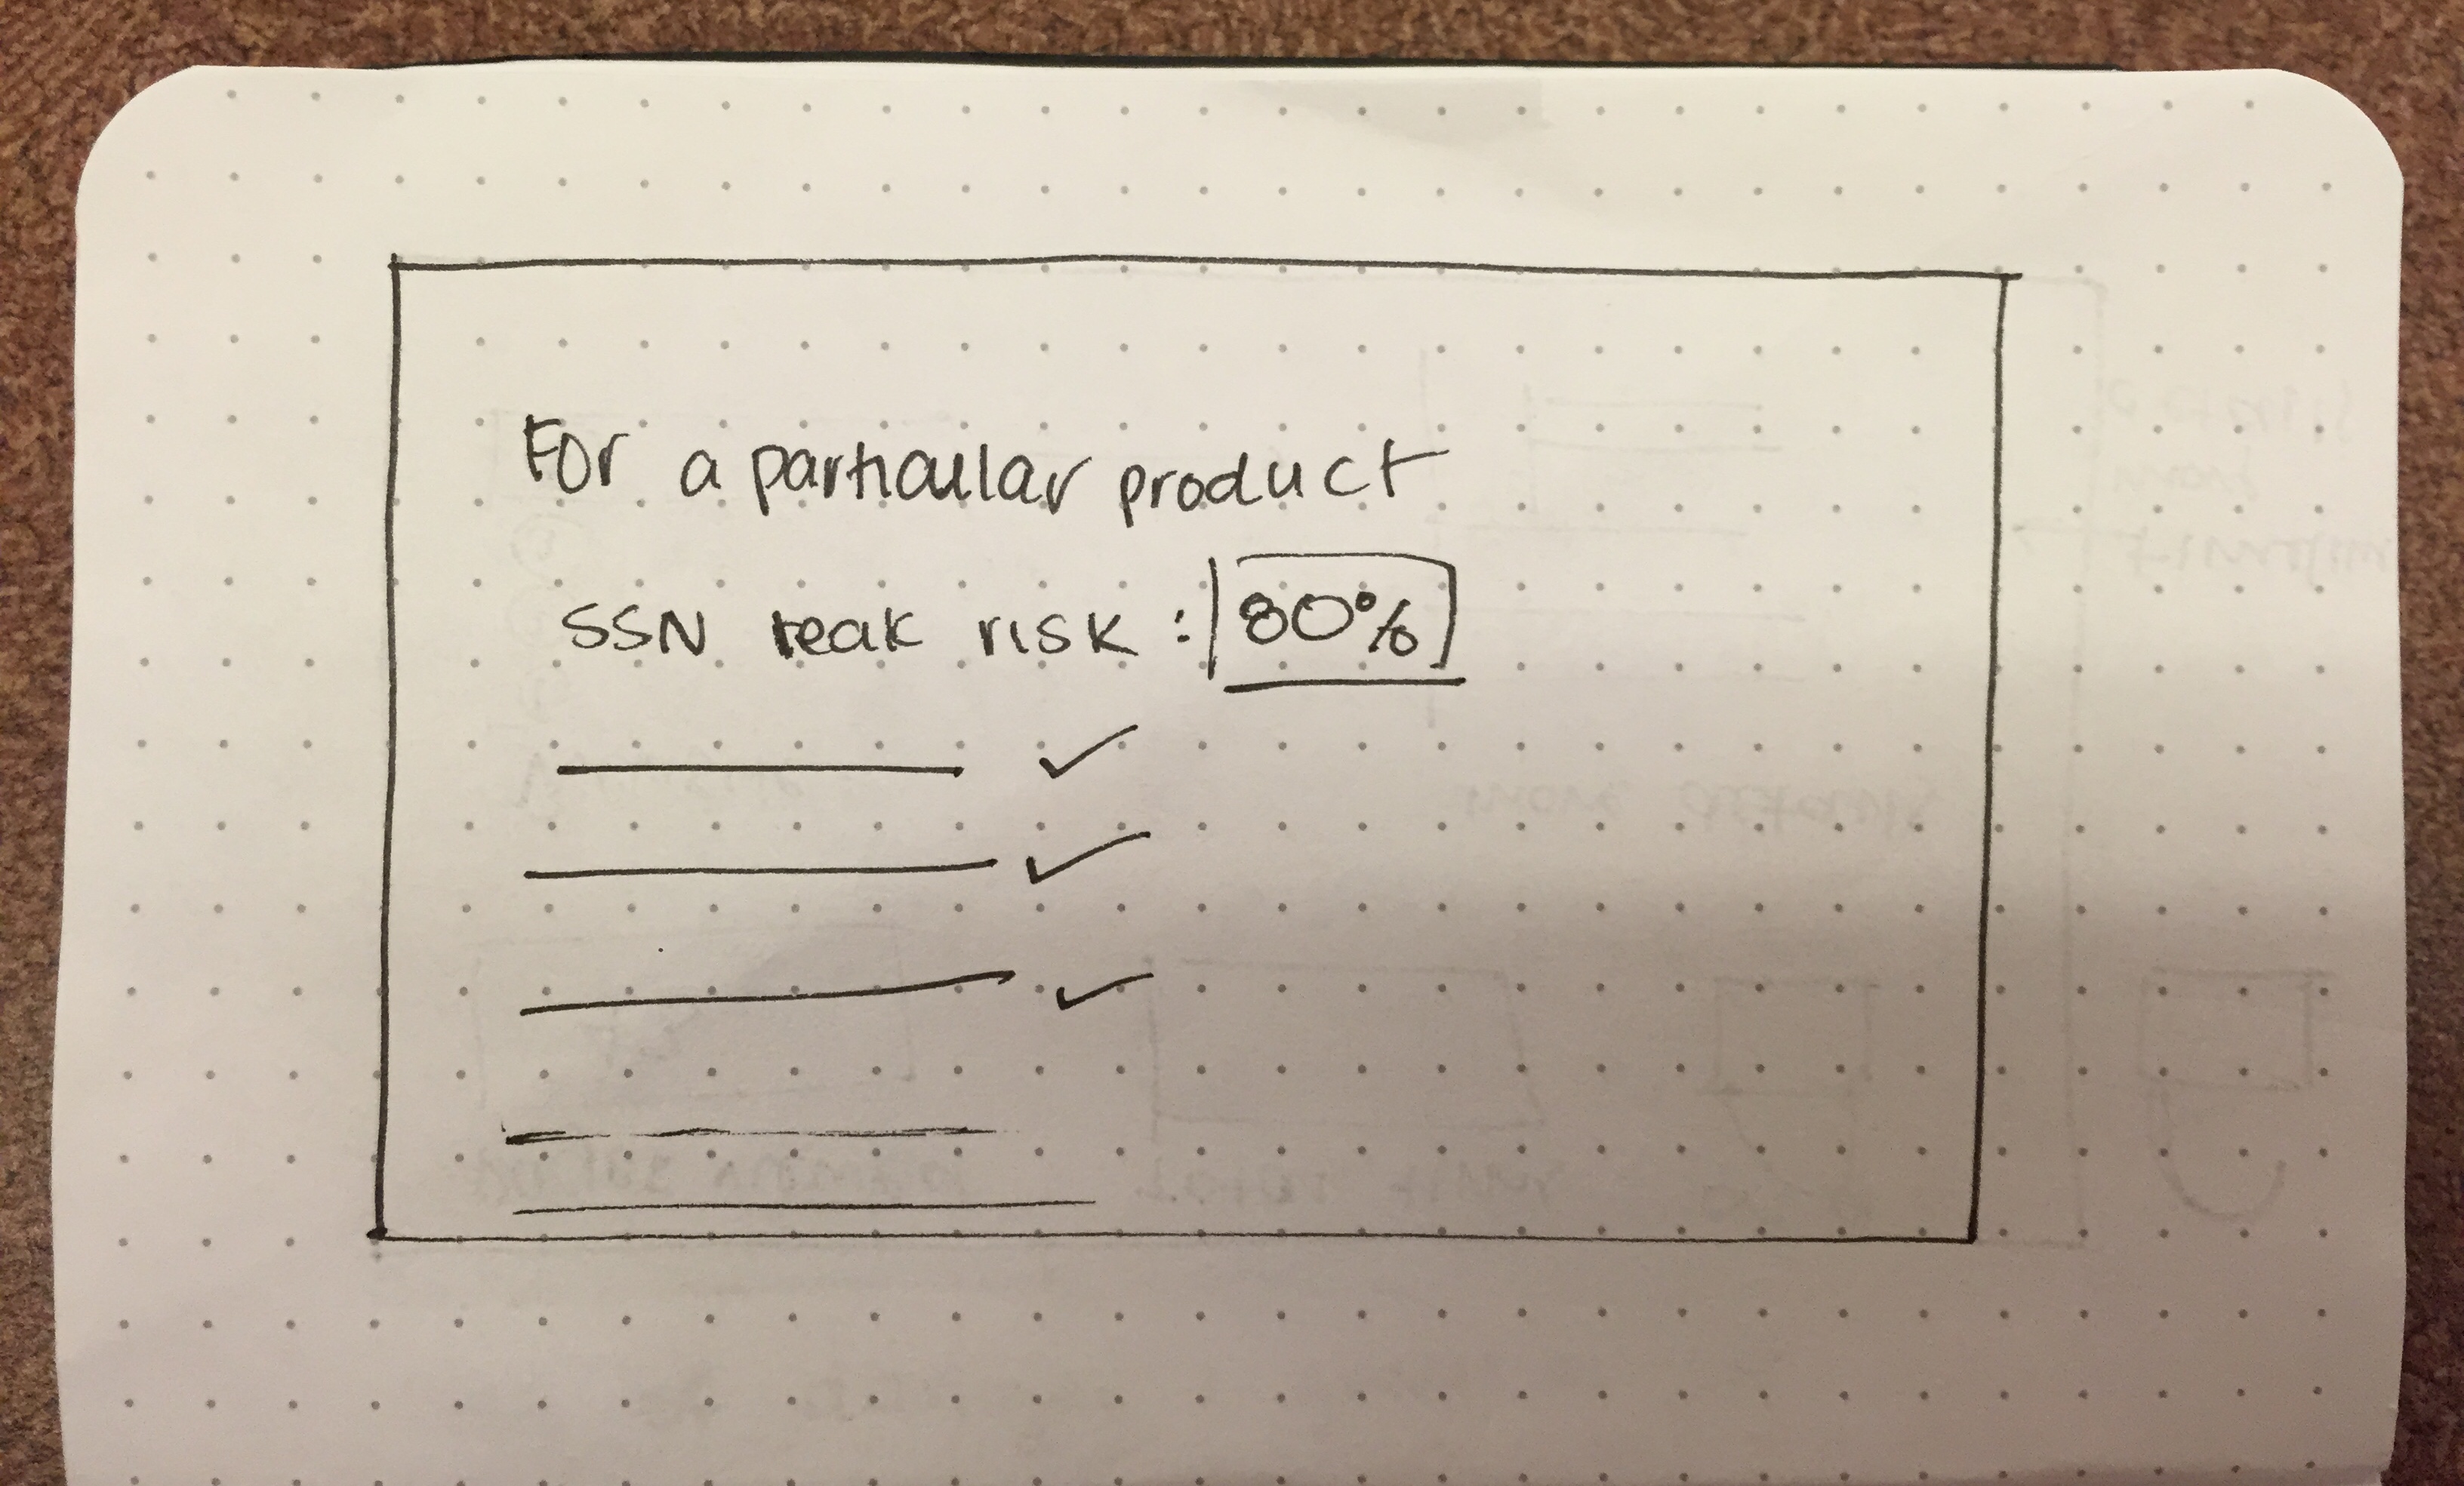 For a particular product
SSN leak risk : 80%